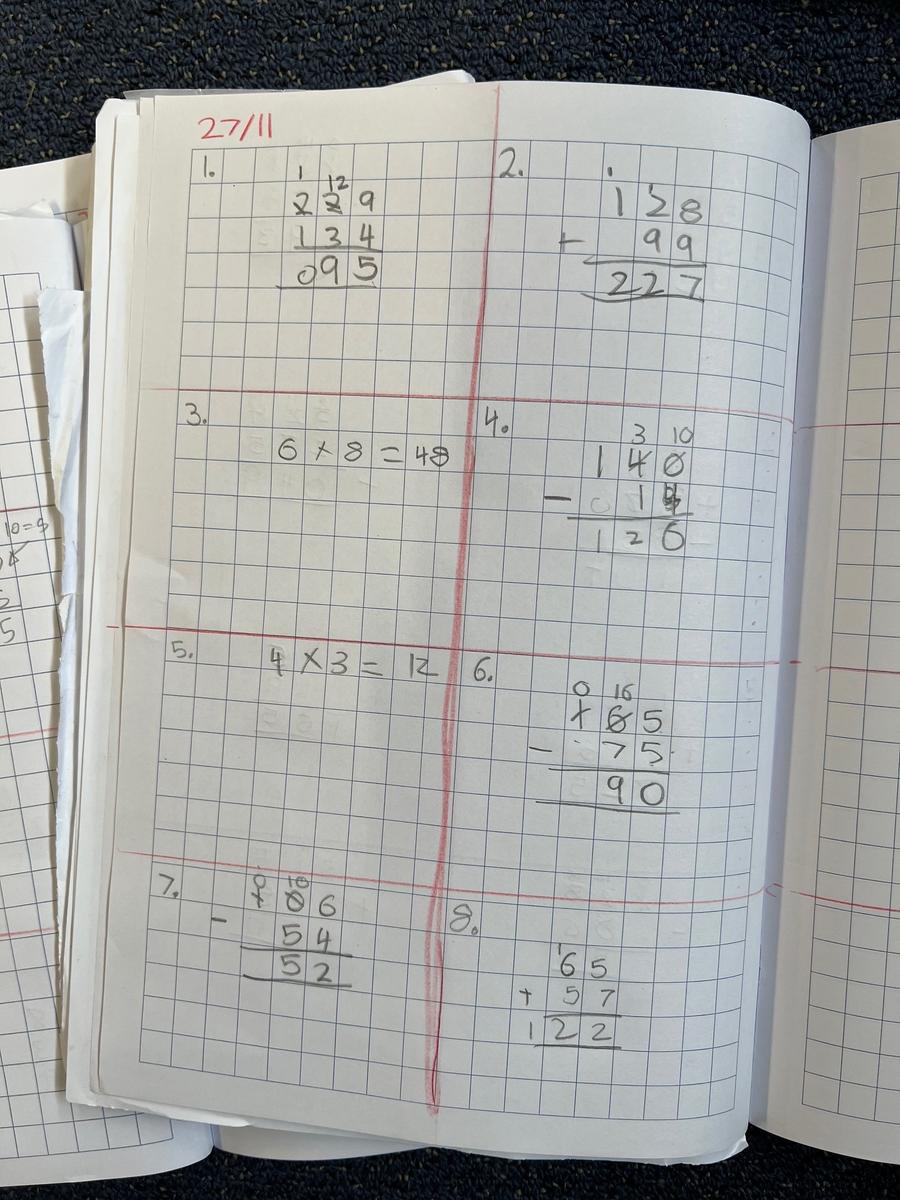 27/11
1.
1 12
2 2 9
1 3 4
0 9 5
2.
1
1 2 8
+ 9 9
2 2 7
3.
6 × 8 = 48
4.
3 10
1 4 0
- 1 4
1 2 6
5.
4 × 3 = 12
6.
0 16
1 6 5
- 7 5
9 0
7.
0 10
1 0 6
- 5 4
5 2
8.
1
6 5
+ 5 7
1 2 2
10=
5